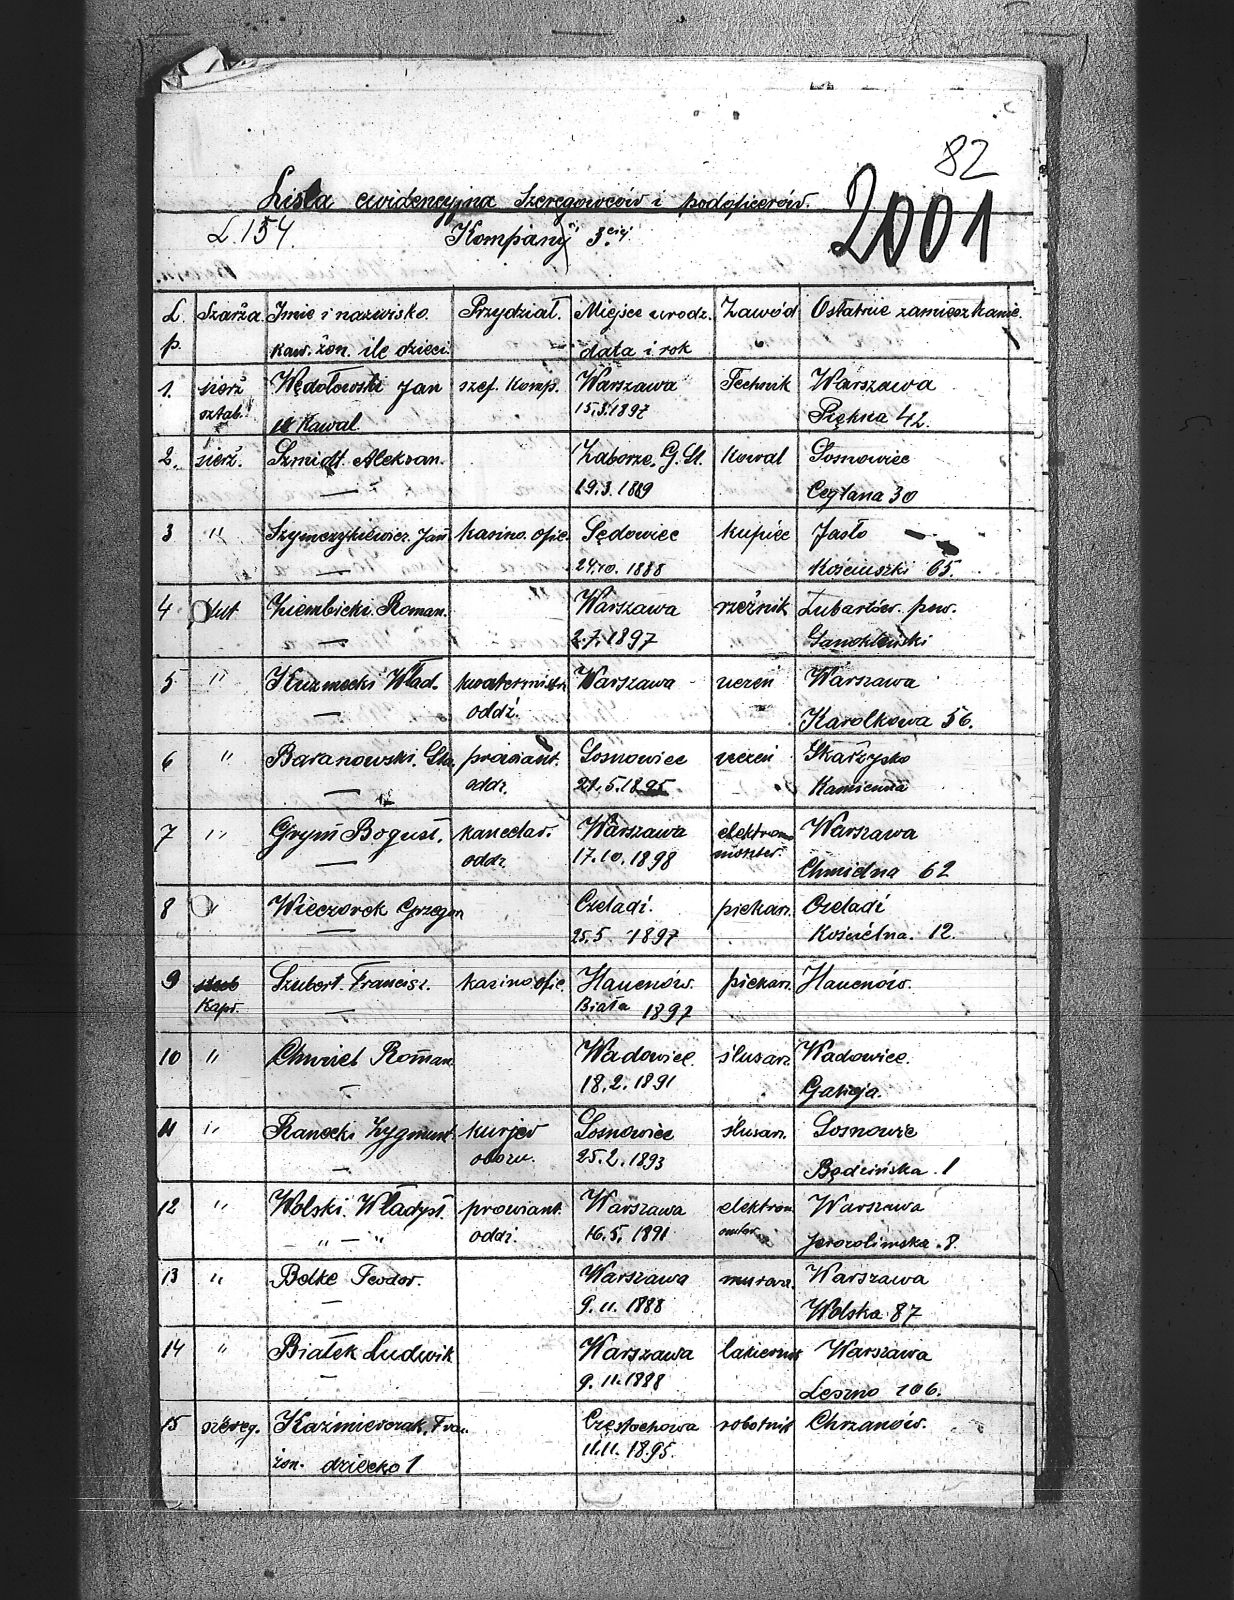 82
2001
Lista ewidencyjna Szeregowców i podoficerów.
L.154. Kompanji 3ciej
L. p. Szarża Imie i nazwisko. kaw. żon. ile dzieci. Przydział. Miejsce urodz. data i rok Zawód Ostatnie zamieszkanie.
1. sierż sztab. Wędołowski Jan szef. Komp. Warszawa Technik Warszawa
Kawal. 15.3.1897 Piękna 42.
2. sierż. Szmidt Aleksan. Zaborze. G. Sl. Kowal Sosnowiec
— 19.3.1889 Ceglana 30
3 " Szymczykiewicz Jan kasino. ofic. Sędowiec kupiec Jasło
— 29.10.1888 Kościuszki 65.
4 plut Ziembicki Roman. Warszawa rzeźnik Lubartów. pow.
— 2.7.1897
5 " Kuzmecki Wład. kwatermistrz Warszawa uczeń Warszawa
— oddz. Karolkowa 56.
6 " Baranowski. Sta. prowiant. Sosnowiec uczeń Skarżysko
— oddz. 21.5.1895 Kamienna
7 " Grym Bogusł. kancelar. Warszawa elektro Warszawa
— oddz 17.10.1898 monter. Chmielna 62
8 " Wieczorek Grzegorz Czeladź. piekarz. Czeladź
— 25.5 1897 Kościelna. 12.
9 Kapr. Szubert. Francisz. kasino ofic. Haucnów. piekarz. Haucnów.
— Biała 1897
10 " Chwiel Roman Wadowice. ślusarz. Wadowice.
— 18.2.1891 Galicja.
11 " Ranecki Zygmunt kurjer Sosnowiec ślusarz. Sosnowie
— obozu. 25.2.1893 Będzińska. 1
12 " Wolski. Władysł. prowiant. Warszawa elektrom. Warszawa
" — " oddz. 16.5.1891 Jerozolimska. 8.
13 " Belke Teodor. Warszawa murarz. Warszawa
— 9.11.1888 Wolska 87
14 " Białek Ludwik Warszawa lakiernik Warszawa
— 9.11.1888 Leszno 106.
15 szereg. Kaźmierczak. Fran. Częstochowa robotnik Chrzanów.
żon. dziecko 1 11.11.1895.